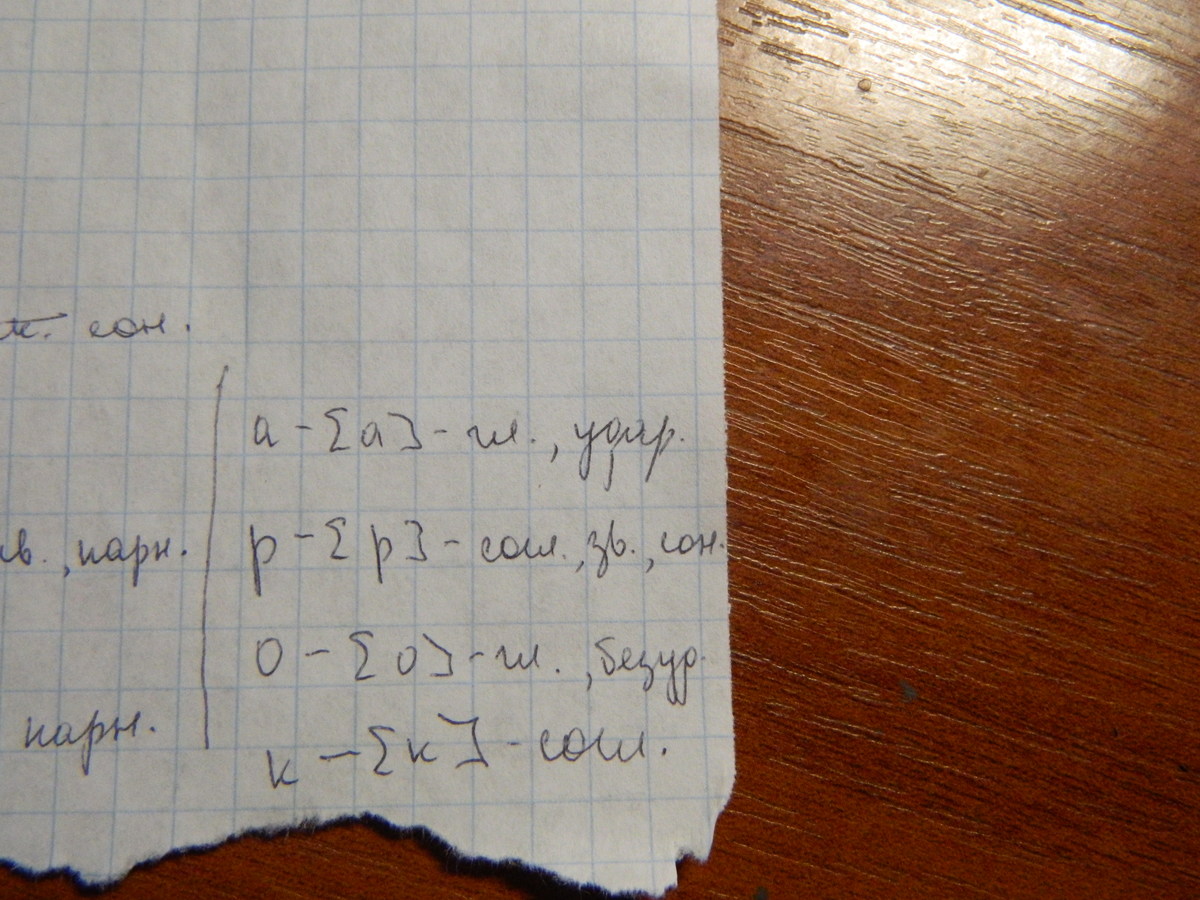 сон.
а - [а] - гл., удар.
парн.
р - [р] - согл., зв., сон.
о - [о] - гл., безуд.
парн.
к - [к] - согл.